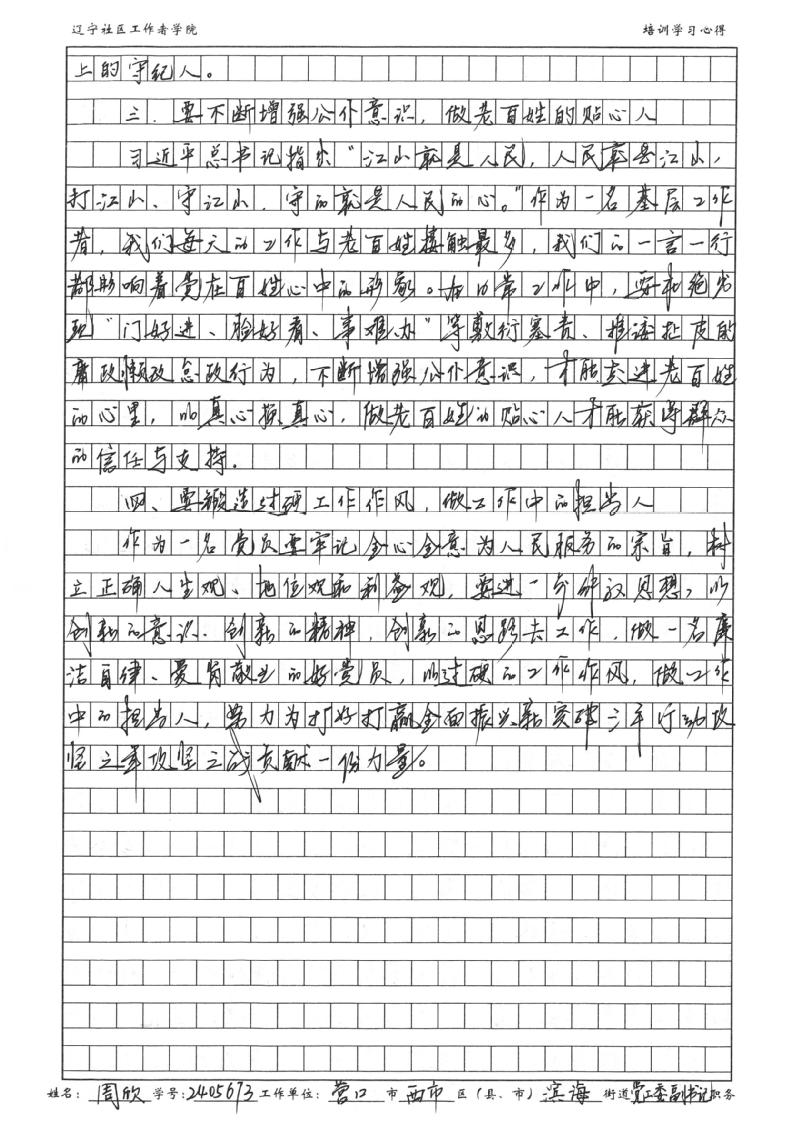 辽宁社区工作者学院 培训学习心得
上的守纪人。
三．要不断增强公仆意识，做老百姓的贴心人
习近平总书记指出“江山就是人民，人民就是江山，
打江山、守江山，守的就是人民的心。”作为一名基层工作
者，我们每天的工作与老百姓接触最多，我们的一言一行
都影响着党在百姓心中的形象。在日常工作中，要杜绝出
现“门好进、脸好看、事难办”等敷衍塞责、推诿扯皮的
庸政懒政怠政行为，不断增强公仆意识，才能走进老百姓
的心里，以真心换真心，做老百姓的贴心人才能获得群众
的信任与支持。
四、要锻造过硬工作作风，做工作中的担当人
作为一名党员要牢记全心全意为人民服务的宗旨，树
立正确人生观、地位观和利益观，要进一步解放思想，以
创新的意识、创新的精神，创新的思路去工作，做一名廉
洁自律、爱岗敬业的好党员，以过硬的工作作风，做工作
中的担当人，努力为打好打赢全面振兴新突破三年行动攻
坚之年攻坚之战贡献一份力量。
姓名：周欣 学号：2405673 工作单位：营口 市 西市 区（县、市） 滨海 街道党工委副书记职务